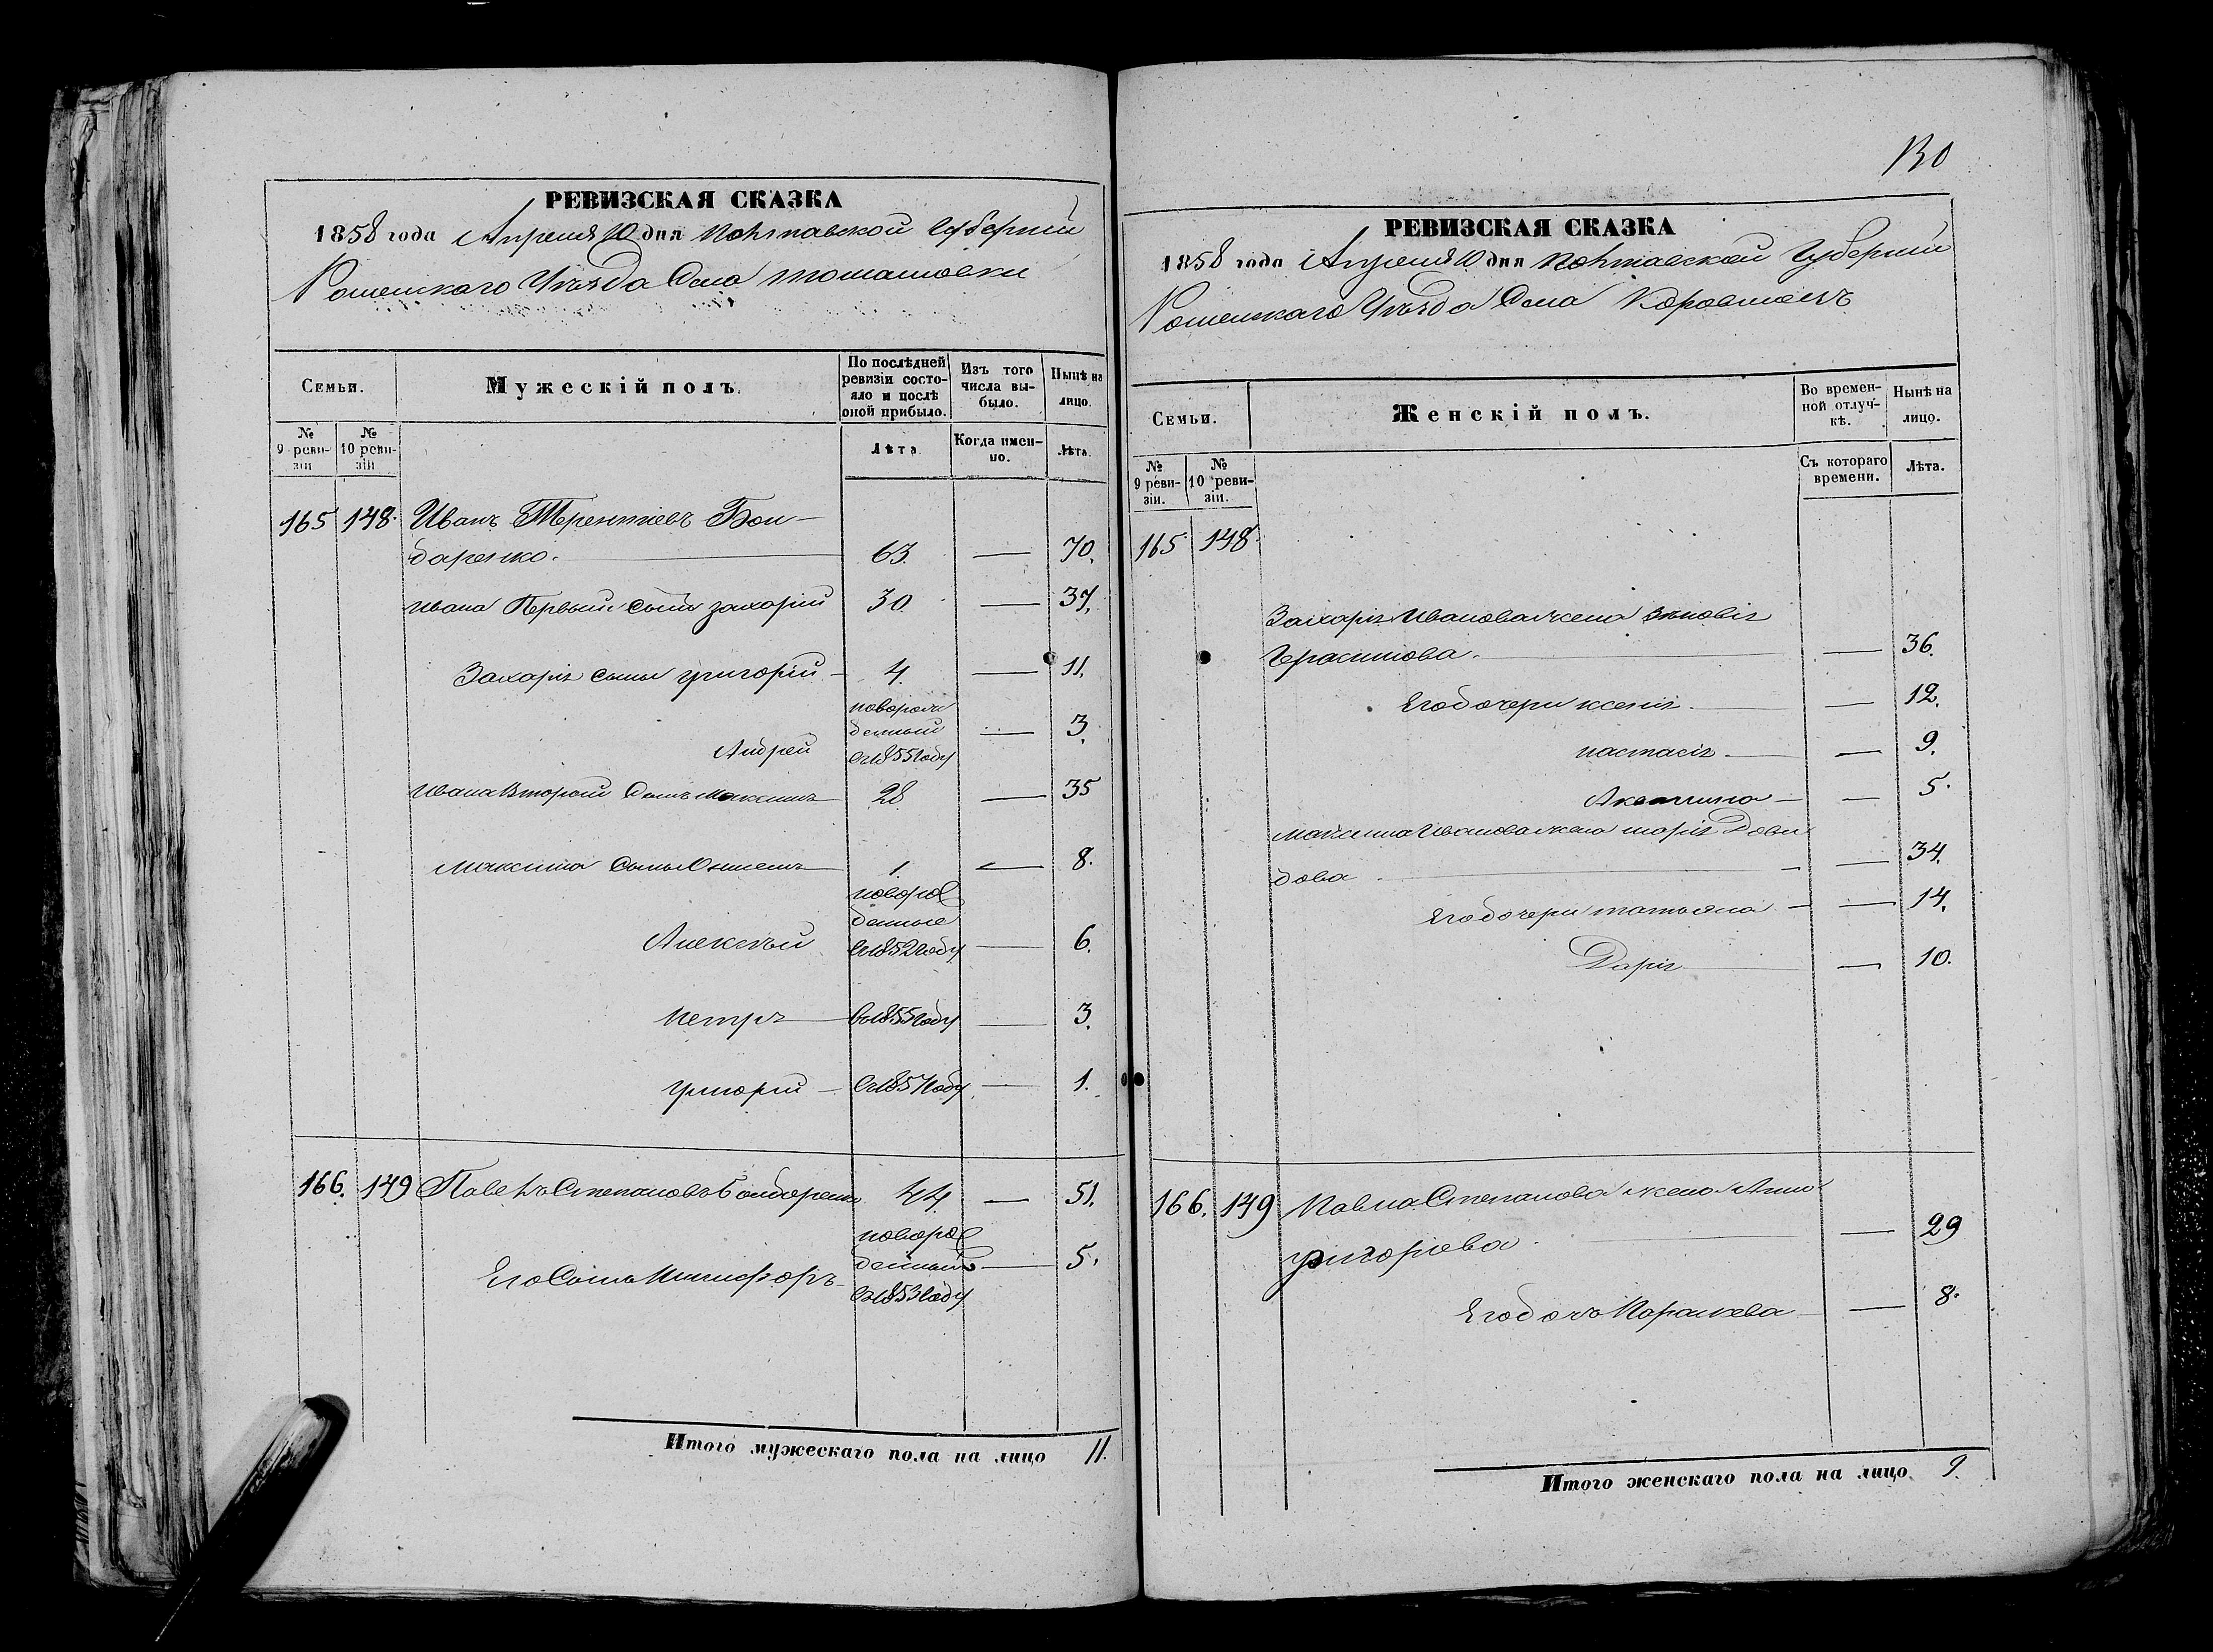 РЕВИЗСКАЯ СКАЗКА
1858 года Апреля 10 дня Полтавской Губернии
Роменскаго Уѣзда Села
Семьи.
Мужескій полъ.
По послѣдней ревизіи состояло и послѣ оной прибыло.
Изъ того числа выбыло.
Нынѣ на лицо.
№ 9 ревизіи
№ 10 ревизіи
Лѣта
Когда именно.
Лѣта.
165 148. Иванъ Терентіевъ Бон-
даренко. 63. — 70.
Ивана Первый сынъ захарій 30 — 37.
Захарія сыны григорій 4. — 11.
новорож
денный — 3.
Андрей въ 1855 году
Ивана Второй Сынъ Максимъ 28 — 35
Максима Сыны 1. — 8.
новорож
денные
Алексѣй въ 1852 году — 6.
Петръ въ 1855 году — 3.
григорій въ 1857 году — 1.
166. 149 Павелъ Степановъ Бондаренко 44 — 51.
новорож
денный — 5.
Его Сынъ Никифоръ въ 1853 году
Итого мужескаго пола на лицо 11.
130
РЕВИЗСКАЯ СКАЗКА
1858 года Апреля 10 дня Полтавской Губернии
Роменскаго Уѣзда Села
Семьи.
Женскій полъ.
Во временной отлучкѣ.
Нынѣ на лицо.
№ 9 ревизіи.
№ 10 ревизіи.
Съ котораго времени.
Лѣта.
165 148
Захарія Иванова жена Зѣновія
Герасимова. — 36.
Его дочери ксенія — 12.
настасія — 9.
Акилина — 5.
Максима Иванова жена марія Дави
дова — 34.
Его дочери татьяна — 14.
Дарія — 10.
166. 149 Павла Степанова жена Анна
григорьева — 29
Его дочь Параскева — 8.
Итого женскаго пола на лицо 9.